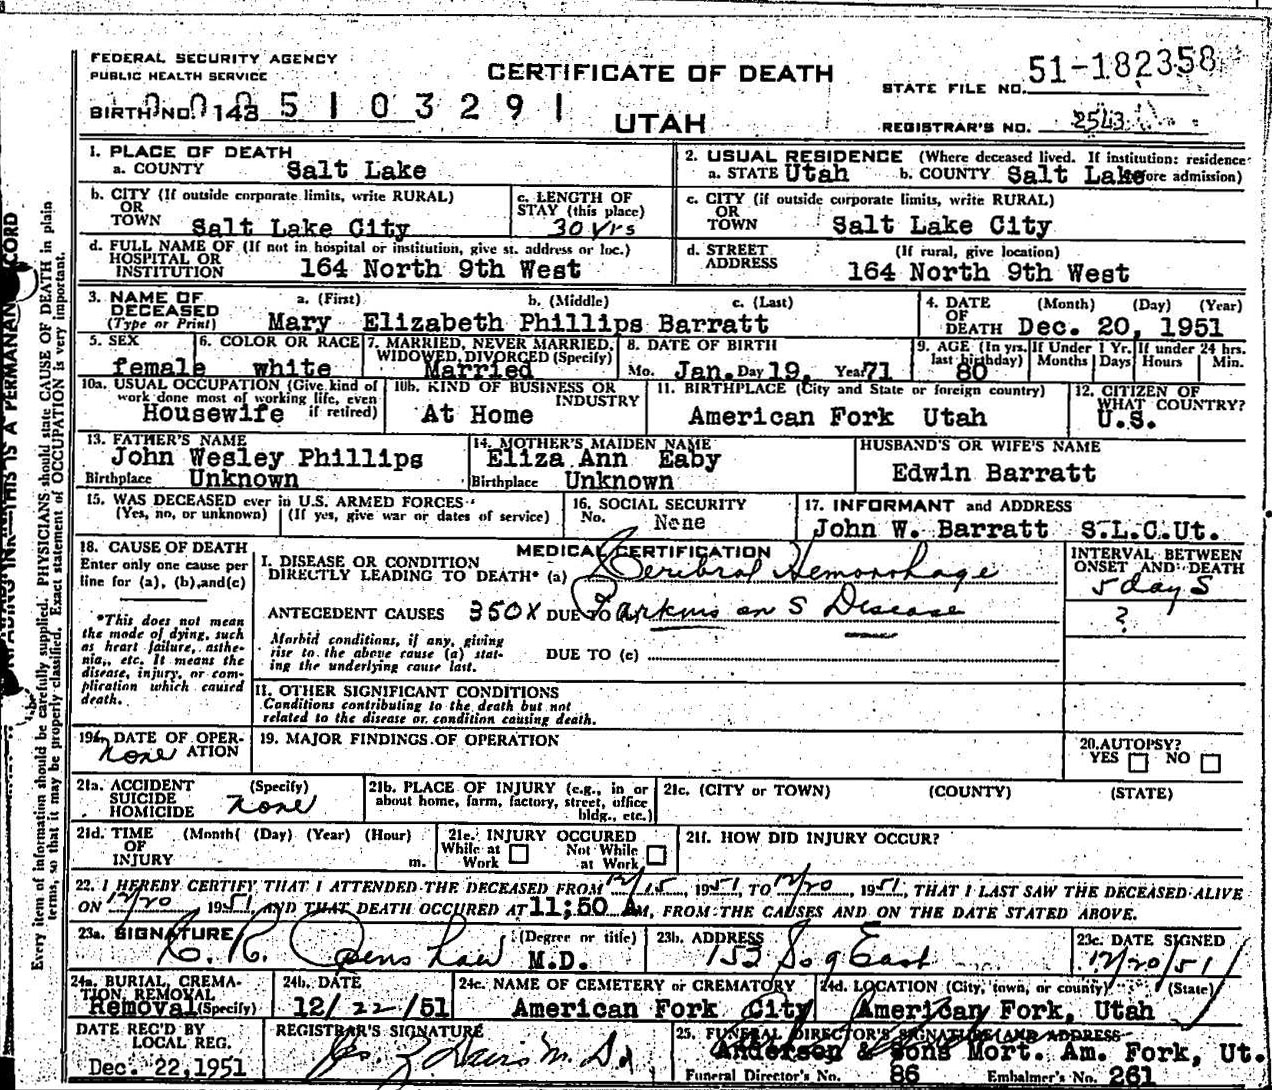 FEDERAL SECURITY AGENCY
PUBLIC HEALTH SERVICE
CERTIFICATE OF DEATH
UTAH
STATE FILE NO. 51-182358
BIRTH NO. 143 5 1 0 3 2 9 1
REGISTRAR'S NO. 2543
1. PLACE OF DEATH
a. COUNTY Salt Lake
2. USUAL RESIDENCE (Where deceased lived. If institution: residence
a. STATE Utah b. COUNTY Salt Lake admission)
b. CITY (If outside corporate limits, write RURAL)
OR
TOWN Salt Lake City
c. LENGTH OF
STAY (this place)
30 yrs
c. CITY (if outside corporate limits, write RURAL)
OR
TOWN Salt Lake City
d. FULL NAME OF (If not in hospital or institution, give st. address or loc.)
HOSPITAL OR
INSTITUTION 164 North 9th West
d. STREET (If rural, give location)
ADDRESS 164 North 9th West
3. NAME OF
DECEASED
(Type or Print)
a. (First) b. (Middle) c. (Last)
Mary Elizabeth Phillips Barratt
4. DATE (Month) (Day) (Year)
OF
DEATH Dec. 20, 1951
5. SEX
female
6. COLOR OR RACE
white
7. MARRIED, NEVER MARRIED,
WIDOWED, DIVORCED (Specify)
Married
8. DATE OF BIRTH
Mo. Jan. Day 19, Year 71
9. AGE (In yrs.
last birthday)
80
If Under 1 Yr.
Months Days
If under 24 hrs.
Hours Min.
10a. USUAL OCCUPATION (Give kind of
work done most of working life, even
if retired)
Housewife
10b. KIND OF BUSINESS OR
INDUSTRY
At Home
11. BIRTHPLACE (City and State or foreign country)
American Fork Utah
12. CITIZEN OF
WHAT COUNTRY?
U.S.
13. FATHER'S NAME
John Wesley Phillips
Birthplace Unknown
14. MOTHER'S MAIDEN NAME
Eliza Ann Eaby
Birthplace Unknown
HUSBAND'S OR WIFE'S NAME
Edwin Barratt
15. WAS DECEASED ever in U.S. ARMED FORCES
(Yes, no, or unknown) (If yes, give war or dates of service)
16. SOCIAL SECURITY
No. None
17. INFORMANT and ADDRESS
John W. Barratt S.L.C.Ut.
18. CAUSE OF DEATH
Enter only one cause per
line for (a), (b), and (c)
*This does not mean
the mode of dying, such
as heart failure, asthe-
nia,, etc. It means the
disease, injury, or com-
plication which caused
death.
MEDICAL CERTIFICATION
I. DISEASE OR CONDITION
DIRECTLY LEADING TO DEATH* (a) Ceribral Hemorrhage
ANTECEDENT CAUSES 350X DUE TO Parkins on s Disease
Morbid conditions, if any, giving
rise to the above cause (a) stat-
ing the underlying cause last.
DUE TO (c)
II. OTHER SIGNIFICANT CONDITIONS
Conditions contributing to the death but not
related to the disease or condition causing death.
INTERVAL BETWEEN
ONSET AND DEATH
5 days
?
DATE OF OPER-
ATION
none
19. MAJOR FINDINGS OF OPERATION
20. AUTOPSY?
YES NO
21a. ACCIDENT (Specify)
SUICIDE
HOMICIDE none
21b. PLACE OF INJURY (e.g., in or
about home, farm, factory, street, office
bldg., etc.)
21c. (CITY or TOWN) (COUNTY) (STATE)
21d. TIME (Month( (Day) (Year) (Hour)
OF
INJURY m.
21e. INJURY OCCURED
While at Work Not While at Work
21f. HOW DID INJURY OCCUR?
22. I HEREBY CERTIFY THAT I ATTENDED THE DECEASED FROM 12/15, 1951, TO 12/20, 1951, THAT I LAST SAW THE DECEASED ALIVE
ON 12/20 1951, AND THAT DEATH OCCURED AT 11;50 AM, FROM THE CAUSES AND ON THE DATE STATED ABOVE.
23a. SIGNATURE (Degree or title)
M.D.
23b. ADDRESS
153 So 9 East
23c. DATE SIGNED
12/20/51
24a. BURIAL, CREMA-
TION, REMOVAL
Removal (Specify)
24b. DATE
12/22/51
24c. NAME OF CEMETERY or CREMATORY
American Fork City
24d. LOCATION (City, town, or county) (State)
American Fork, Utah
DATE REC'D BY
LOCAL REG.
Dec. 22, 1951
REGISTRAR'S SIGNATURE
25. FUNERAL DIRECTOR'S SIGNATURE (AND ADDRESS
Anderson & Sons Mort. Am. Fork, Ut.
Funeral Director's No. 86 Embalmer's No. 261
Every item of information should be carefully supplied. PHYSICIANS should state CAUSE OF DEATH in plain
terms, so that it may be properly classified. Exact statement of OCCUPATION is very important.
THIS IS A PERMANENT